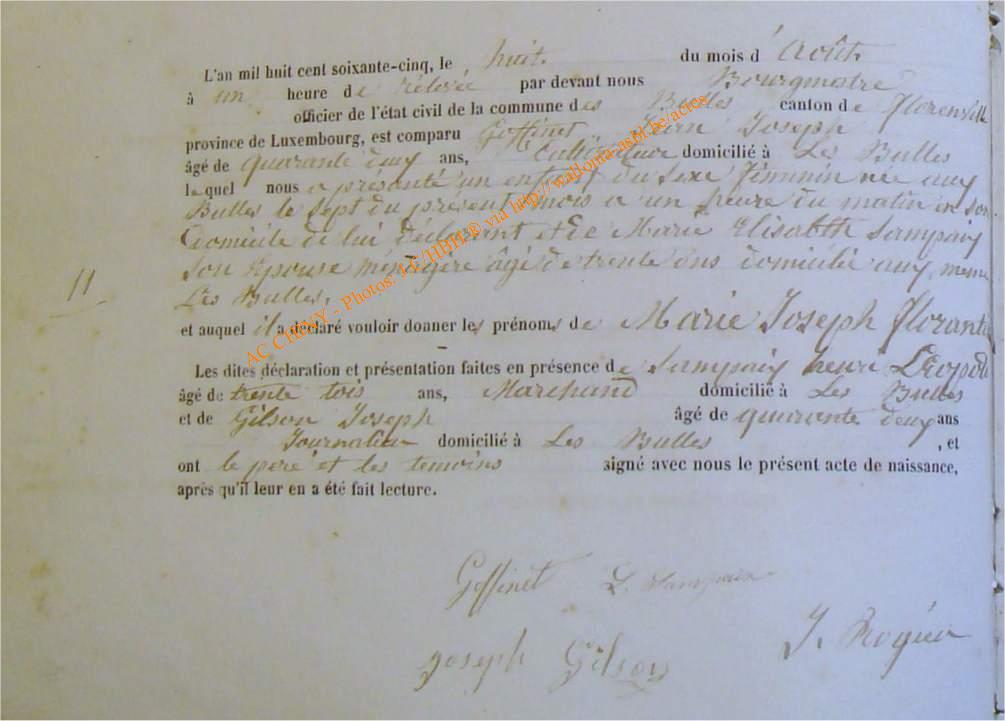 L'an mil huit cent soixante-cinq, le huit du mois d'Août
à un heure de rélévée par devant nous Bourgmestre
officier de l'état civil de la commune des Bulles canton de Florenville
province de Luxembourg, est comparu Goffinet Jean Joseph
âgé de quarante deux ans, Cultivateur domicilié à Les Bulles
lequel nous a présenté un enfant du sexe féminin née aux
Bulles le sept du présent mois a un heure du matin en son
domicile de lui declarant et de Marie Elisabeth Lampaix
son épouse ménagère âgé de trente ans domicilié aux meme
Les Bulles.
11
et auquel il a déclaré vouloir donner les prénoms de Marie Joseph Florantine
Les dites déclaration et présentation faites en présence de Lampaix henri Léopold
âgé de trente tois ans, Marchand domicilié à Les Bulles
et de Gilson Joseph âgé de quarante deux ans
Journalier domicilié à Les Bulles, et
ont le pere et les temoins signé avec nous le présent acte de naissance,
après qu'il leur en a été fait lecture.
Goffinet L. Lampaix
Joseph Gilson J.
AC CHINY - Photos: J.L/HBH ® via http://wallonia-asbl.be/actes